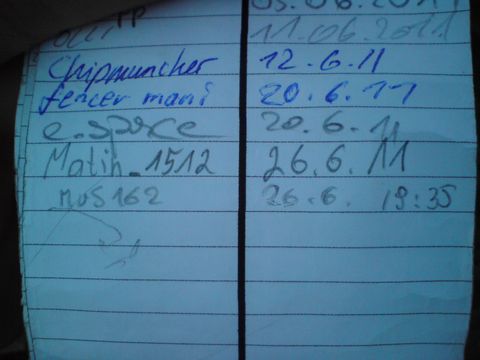 TP 05.06.2011
11.06.2011
Chipmuncher 12.6.11
fencer mani 20.6.11
e.space 20.6.11
Matih_1512 26.6.11
MUS162 26.6. 19:35